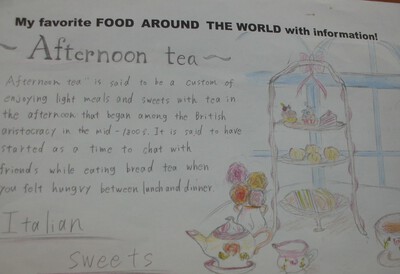 My favorite FOOD AROUND THE WORLD with information!
~ Afternoon tea ~
"Afternoon tea" is said to be a custom of
enjoying light meals and sweets with tea in
the afternoon that began among the British
aristocracy in the mid-1800s. It is said to have
started as a time to chat with
friends while eating bread tea when
you felt hungry between lunch and dinner.
Italian
sweets